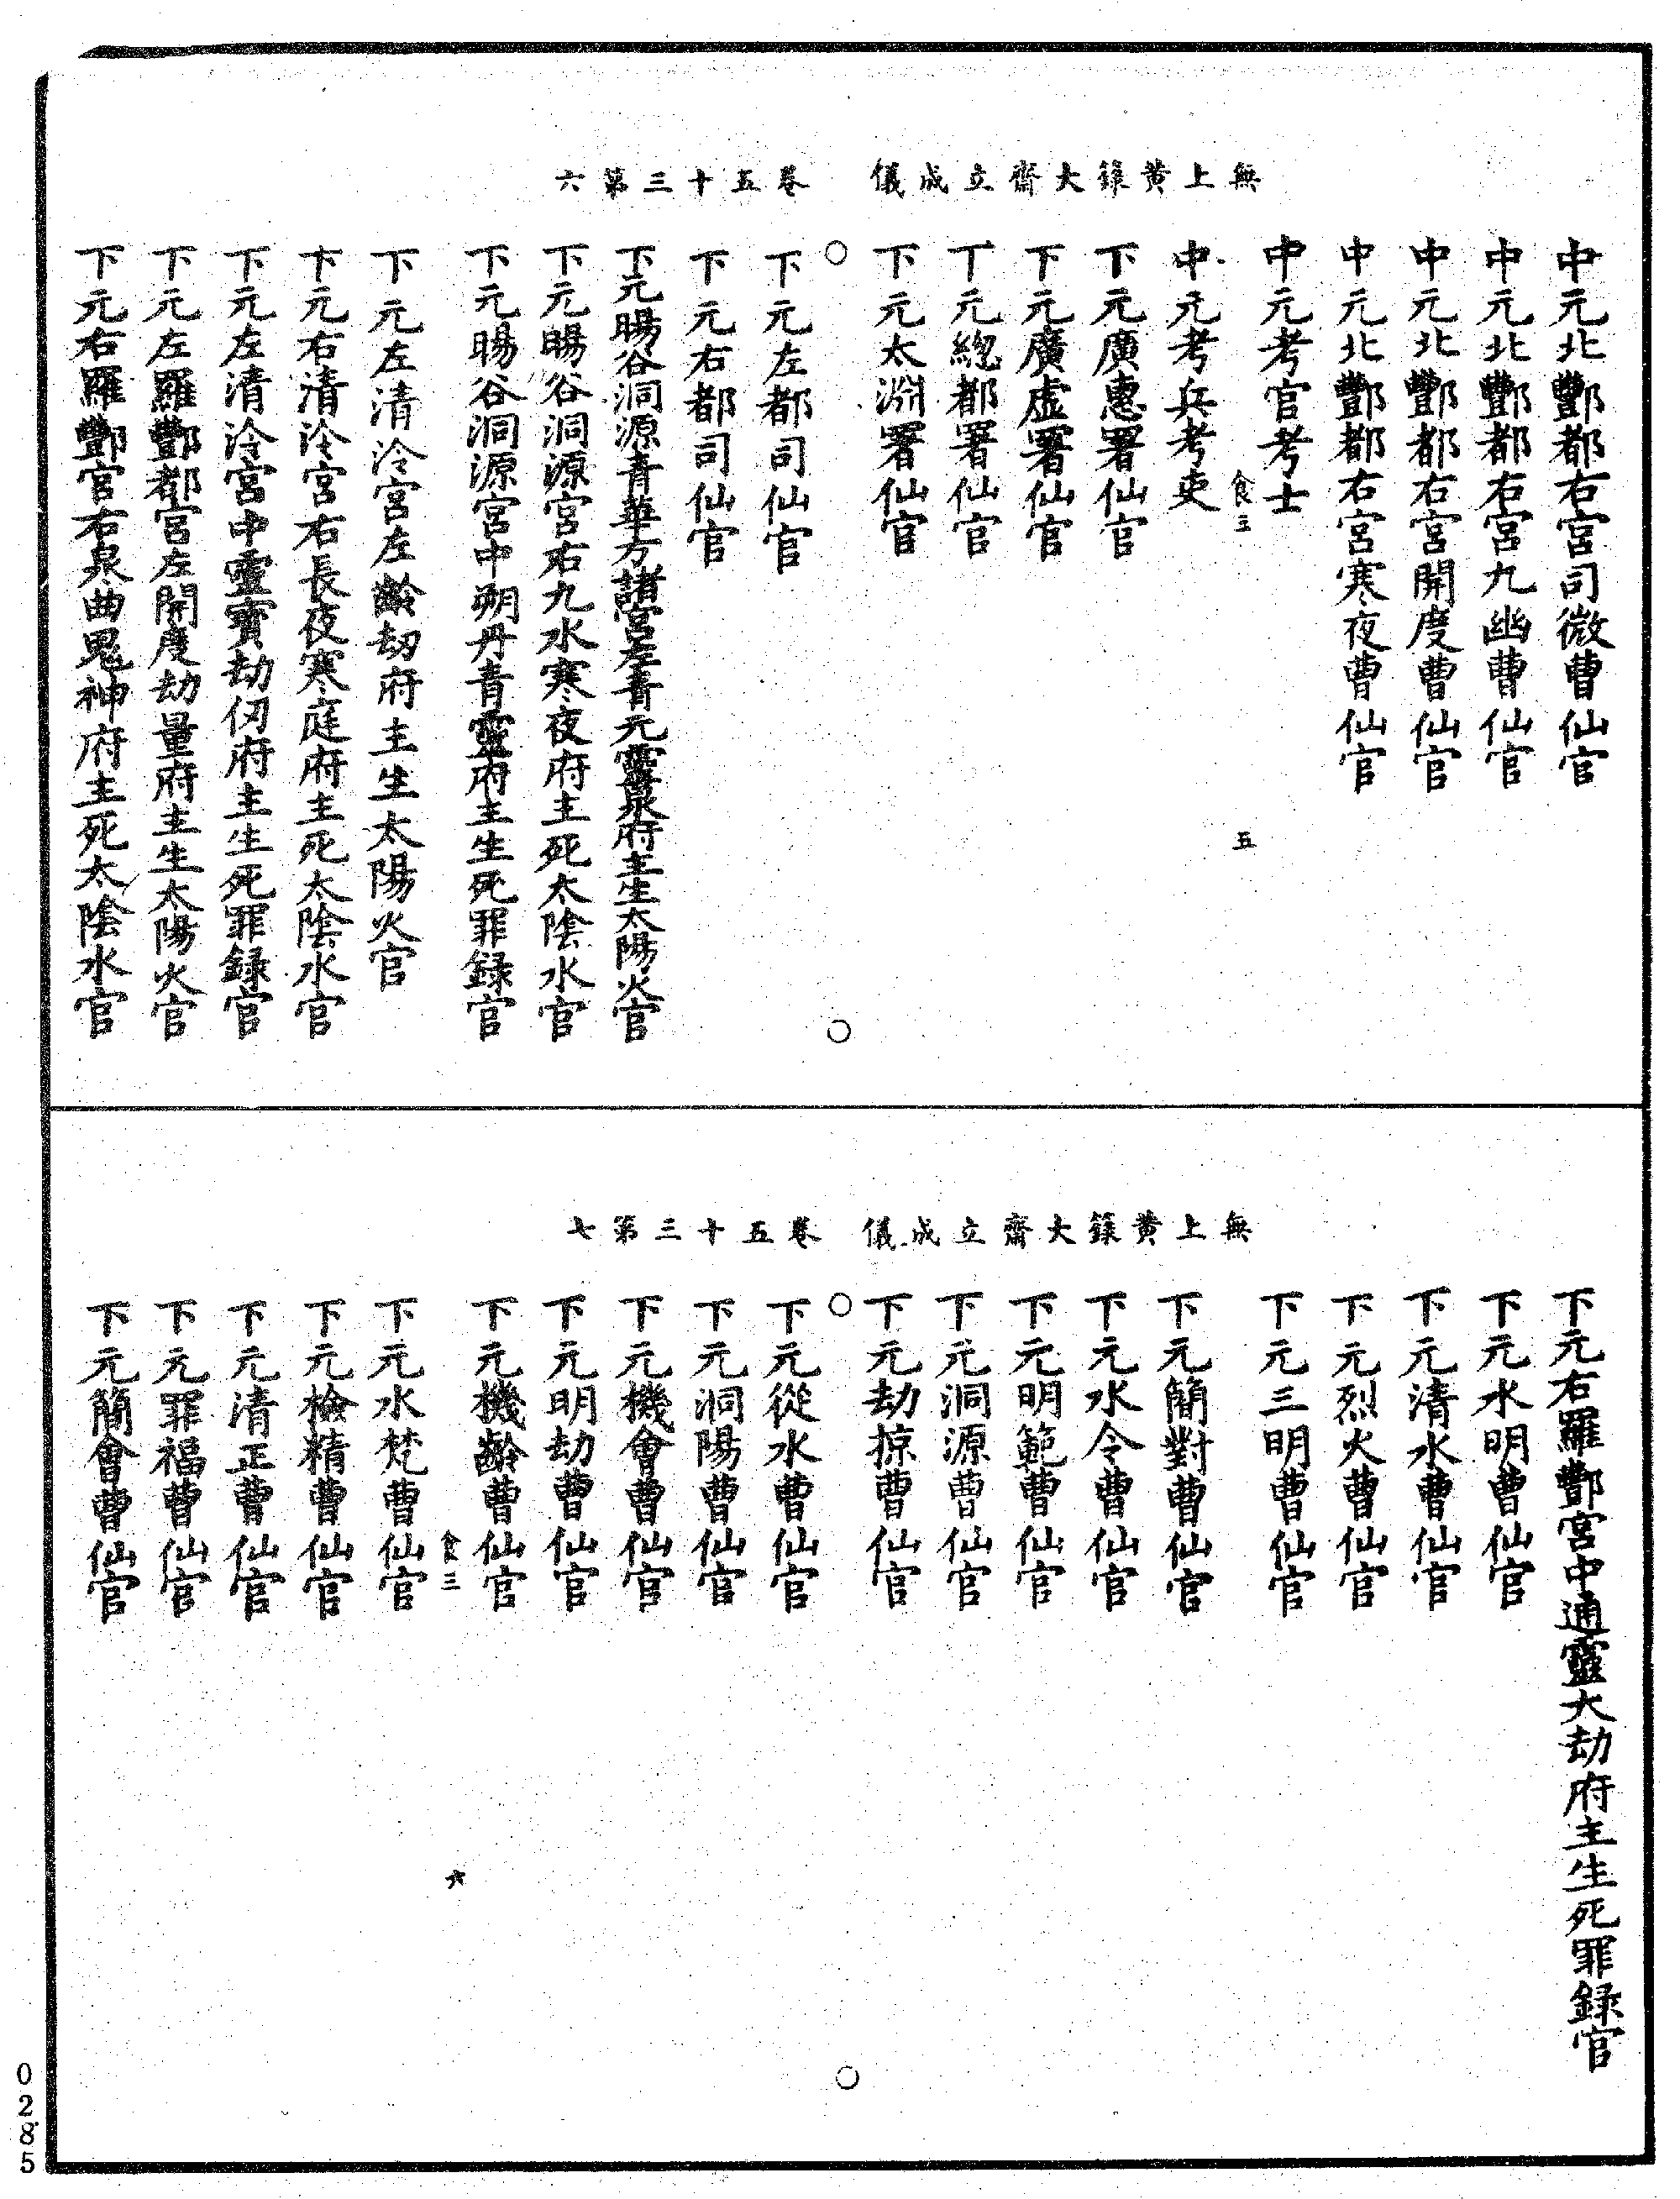 無上黄籙大齋立成儀　卷五十三第六
中元北酆都右宮司微曹仙官
中元北酆都右宮九幽曹仙官
中元北酆都右宮開度曹仙官
中元北酆都右宮寒夜曹仙官
中元考官考士
食三　五
中元考兵考吏
下元廣惠署仙官
下元廣虚署仙官
下元緫都署仙官
下元太淵署仙官
下元左都司仙官
下元右都司仙官
下元暘谷洞源青華方諸宮左青元靈泉府主生太陽火官
下元暘谷洞源宮右九水寒夜府主死太陰水官
下元暘谷洞源宮中朔丹青靈府主生死罪録官
下元左清泠宮左齡劫府主生太陽火官
下元右清泠宮右長夜寒庭府主死太陰水官
下元左清泠宮中靈寳劫仞府主生死罪録官
下元左羅酆都宮左開度劫量府主生太陽火官
下元右羅酆宮右泉曲鬼神府主死太陰水官
無上黄籙大齋立成儀　卷五十三第七
下元右羅酆宮中通靈大劫府主生死罪録官
下元水明曹仙官
下元清水曹仙官
下元烈火曹仙官
下元三明曹仙官
下元簡對曹仙官
下元水令曹仙官
下元明範曹仙官
下元洞源曹仙官
下元劫掠曹仙官
下元從水曹仙官
下元洞陽曹仙官
下元機會曹仙官
下元明劫曹仙官
下元機齡曹仙官
食三　六
下元水梵曹仙官
下元檢精曹仙官
下元清正曹仙官
下元罪福曹仙官
下元簡會曹仙官
0285